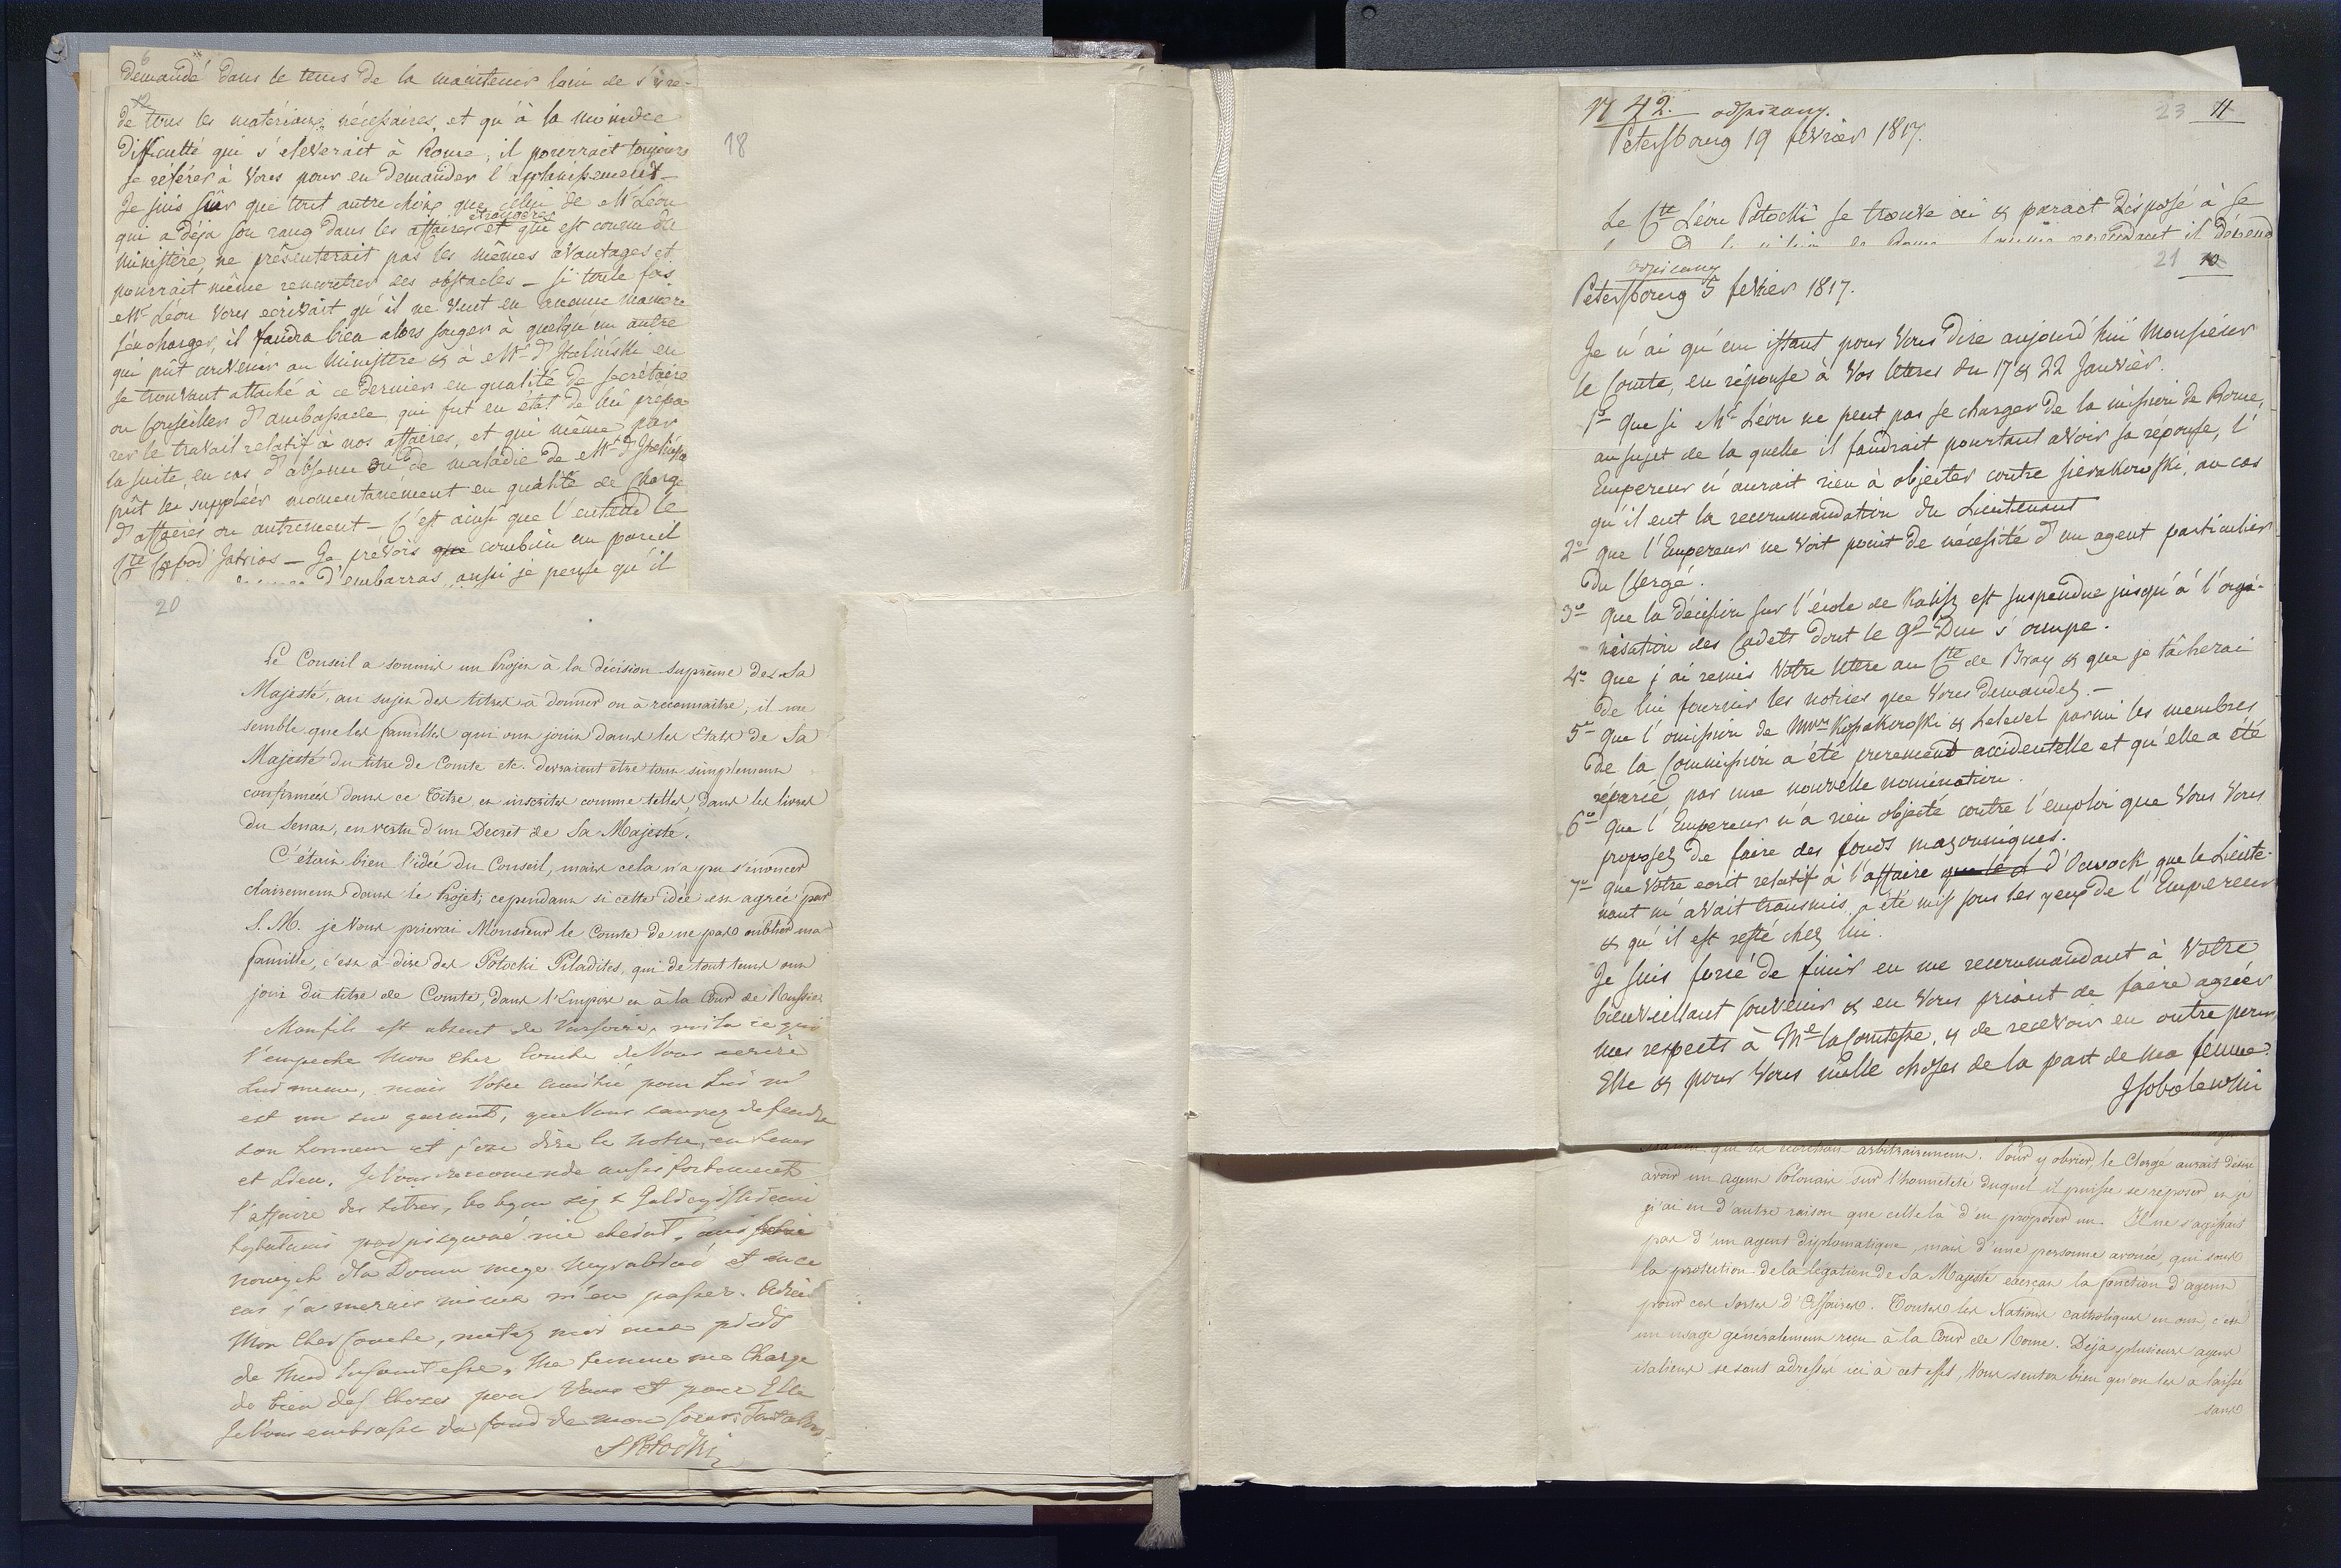 6
demandé dans le tems de la maintenir loin de s'ére-
12
de tous les matériaux nécessaires, et qu'à la moindre
difficulté qui s'eleverait à Rome, il pourrait toujours
se référer à Vous pour en demander l'applanissement —
Je suis sûr que tout autre choix que celui de Mr Léon
qui a déja son rang dans les affaires etrangères et qui est connu du
ministère, ne présenterait pas les mêmes avantages et
pourrait même rencontrer des obstacles — si toute fois
Mr Léon Vous ecrivait qu'il ne veut en aucune manière
s'en charger, il faudra bien alors songer à quelqu'un autre
qui pût convenir au Ministère & à Mr d'Italinski en
se trouvant attaché à ce dernier en qualité de secrétaire
ou conseiller d'ambassade qui fut en état de lui prépa
rer le travail relatif à nos affaires, et qui même par
la suite, en cas d'absence ou de maladie de Mr d'Italinski
pût le suppléer momentanément en qualité de chargé
d'affaires ou autrement — C'est ainsi que l'entend le
Cte Capod'Istrias — Je prévois que combien un pareil
d'embarras, aussi je pense qu'il
18
20
Le Conseil a soumis un Projet à la décision suprême de Sa
Majesté, au sujet des titres à donner ou à reconnaître; il me
semble que les familles qui ont joui dans les Etats de Sa
Majesté du titre de Comte etc. devraient etre tout simplement
confirmées dans ce Titre, et inscrites comme telles, dans les livres
du Senat, en vertu d'un Decret de Sa Majesté.
C'étoit bien l'idée du Conseil, mais cela n'a pu s'énoncer
clairement dans le Projet; cependant si cette idée est agréée par
S. M. je Vous prierai Monsieur le Comte de ne pas oublier ma
famille, c'est à dire des Potocki Pilawites, qui de tout tems ont
joui du titre de Comte, dans l'Empire et à la Cour de Russie.
Mon fils est absent de Varsovie, voila ce qui
l'empeche Mon cher Comte de Vous ecrire
Lui meme, mais Votre amitié pour Lui m'
est un sur garant, que Vous saurez defendre
son honneur et j'ose dire le notre, en tems
et Lieu. Je Vous recomende aussi fortement
l'affaire des titres, bo bym się z
nie chciał,
nowych dla Domu mego et en ce
cas j'aimerais mieux m'en passer. Adieu
Mon Cher Comte, mettez moi aux pieds
de Mad la Comtesse. Ma femme me charge
de bien des choses pour Vous et pour Elle
Je Vous embrasse du fond de mon coeur
S Potocki
N 42. odpisany.
23 11
Petersbourg 19 fevrier 1817.
Le Cte Léon Potocki se trouve ici & parait disposé à se
odpisany
21 10
Petersbourg 5 fevrier 1817.
Je n'ai qu'un istant pour Vous dire aujourd'hui Monsieur
le Comte, en réponse à Vos lettres du 17 & 22 Janvier.
1o Que si Mr Léon ne peut pas se charger de la mission de Rome,
au sujet de la quelle il faudrait pourtant avoir sa réponse, l'
Empereur n'aurait rien à objecter contre Sierakowski, au cas
qu'il eut la recommandation du Lieutenant
2o Que l'Empereur ne voit point de nécessité d'un agent particulier
du Clergé.
3o Que la décision sur l'école de Kalisz est suspendue jusqu'à l'orga-
nisation des Cadets dont le Gd Duc s'occupe.
4o Que j'ai remis Votre lettre au Cte de Bray & que je tâcherai
de lui fournir les notices que Vous demandez. —
5o Que l'omission de Mrs Kossakowski & Lelevel parmi les membres
de la Commission a été purement accidentelle et qu'elle a été
réparée, par une nouvelle nomination.
6o Que l'Empereur n'a rien objecté contre l'emploi que Vous Vous
proposez de faire des fonds maçonniques.
7o Que Votre ecrit relatif à l'affaire que le d d'Ocwock que le Lieute-
nant m'avait transmis, a été mis sous les yeux de l'Empereur
& qu'il est resté chez lui.
Je suis forcé de finir en me recommandant à Votre
bienveillant souvenir & en Vous priant de faire agréer
mes respects à Me la Comtesse, & de recevoir en outre pour
Elle & pour Vous mille choses de la part de ma femme.
JSobolewski
arbitrairement. Pour y obvier, le Clergé aurait désiré
avoir un agent Polonais sur l'honnêteté duquel il puisse se reposer et je
n'ai eu d'autre raison que celle là d'en proposer un. Il ne s'agissait
pas d'un agent diplomatique, mais d'une personne avouée, qui sous
la protection de la legation de Sa Majesté exerçat la fonction d'agent
pour ces sortes d'affaires. Toutes les Nations catholiques en ont, c'est
un usage généralement reçu à la Cour de Rome. Déja plusieurs agens
italiens se sont adressés ici à cet effet, Vous sentez bien qu'on les a laissé
sans